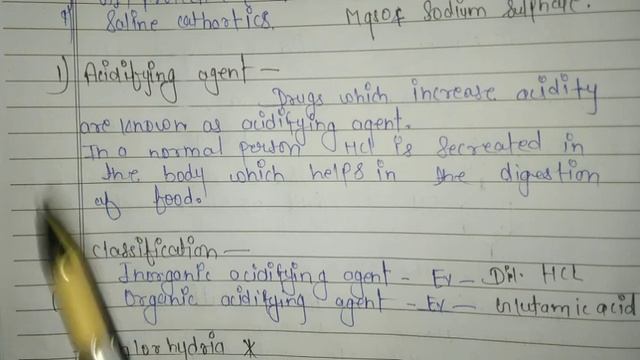 9) Saline cathartics MgSO4 Sodium Sulphate.
1) Acidifying agent —
Drugs which increase acidity
are known as acidifying agent.
In a normal person HCl is secreated in
the body which helps in the digestion
of food.
classification —
Inorganic acidifying agent - Ex - Dil. HCl
Organic acidifying agent - Ex - Glutamic acid
lorhydria *